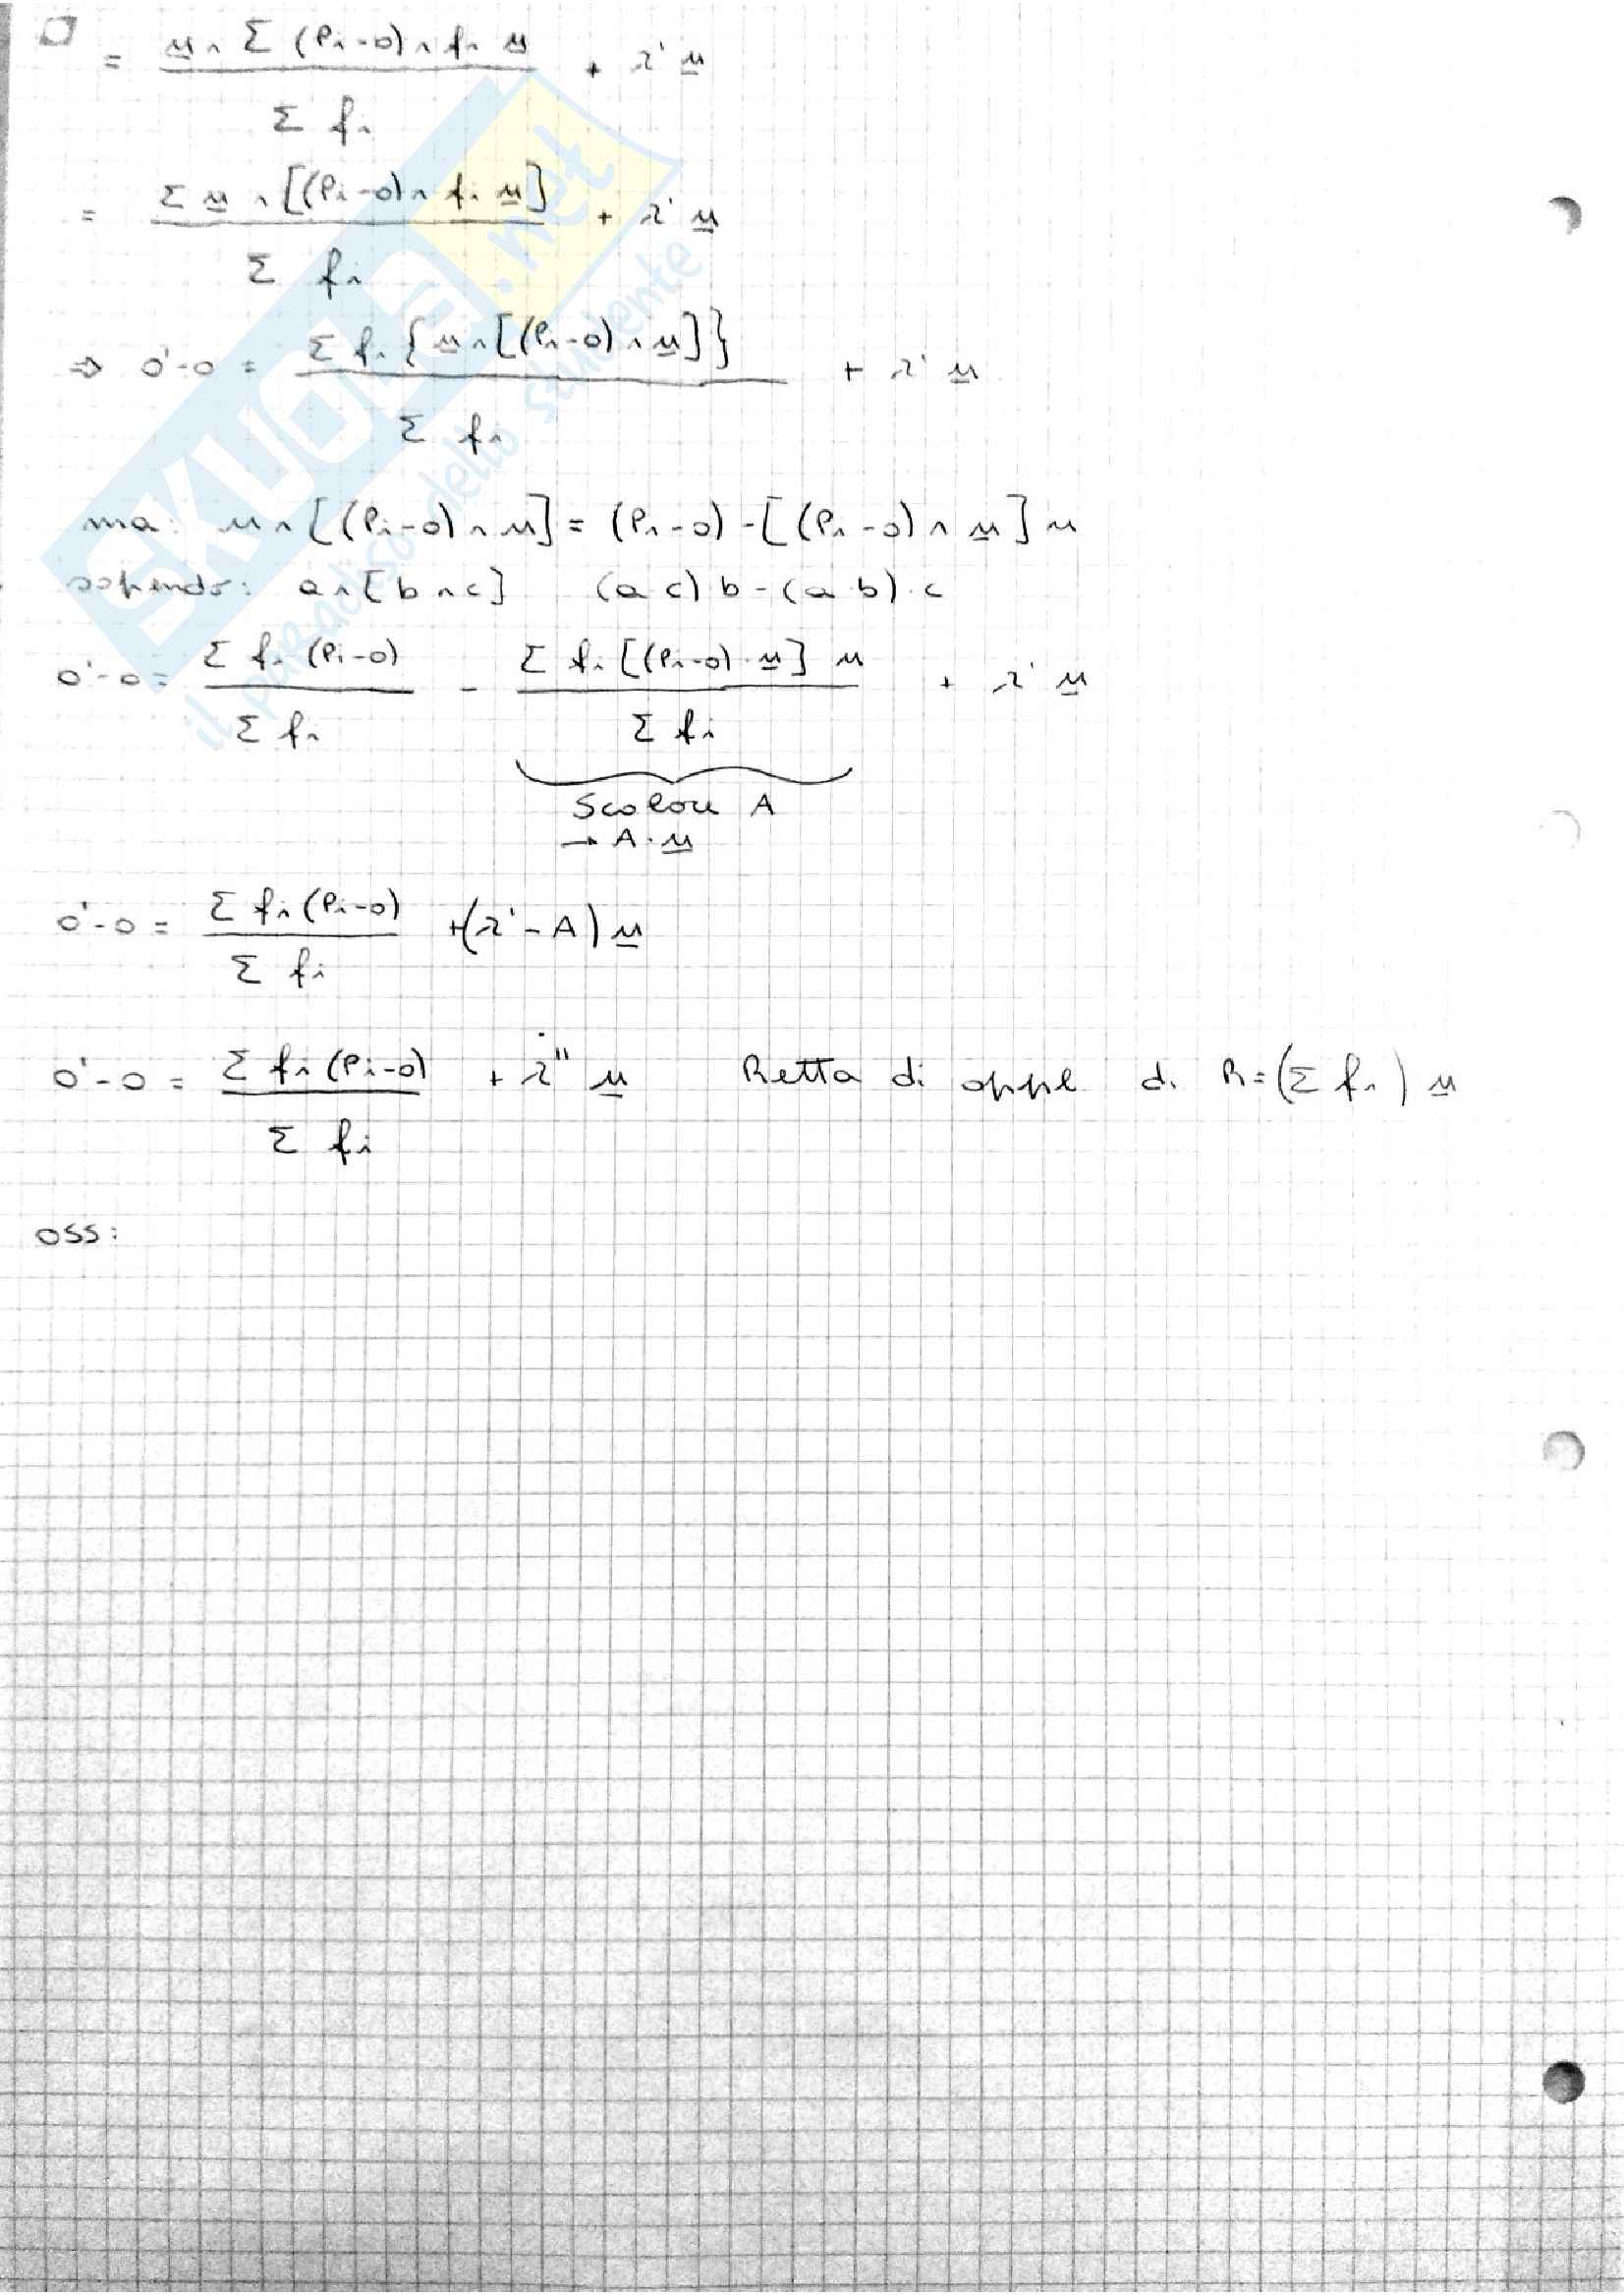 = u ∧ Σ (Pi-O) ∧ fi u / Σ fi + λ' u
= Σ u ∧ [(Pi-O) ∧ fi u] / Σ fi + λ' u
⇒ O'-O = Σ fi {u ∧ [(Pi-O) ∧ u]} / Σ fi + λ' u
ma: u ∧ [(Pi-O) ∧ u] = (Pi-O) - [(Pi-O) ∧ u] u
sapendo: a ∧ [b ∧ c] (a c) b - (a·b)·c
O'-O = Σ fi (Pi-O) / Σ fi - Σ fi [(Pi-O)·u] u / Σ fi + λ' u
Scalare A
→ A·u
O'-O = Σ fi (Pi-O) / Σ fi + (λ' - A) u
O'-O = Σ fi (Pi-O) / Σ fi + λ'' u Retta di appl di R = (Σ fi) u
oss:
SKUOLA.net
il paradiso dello studente